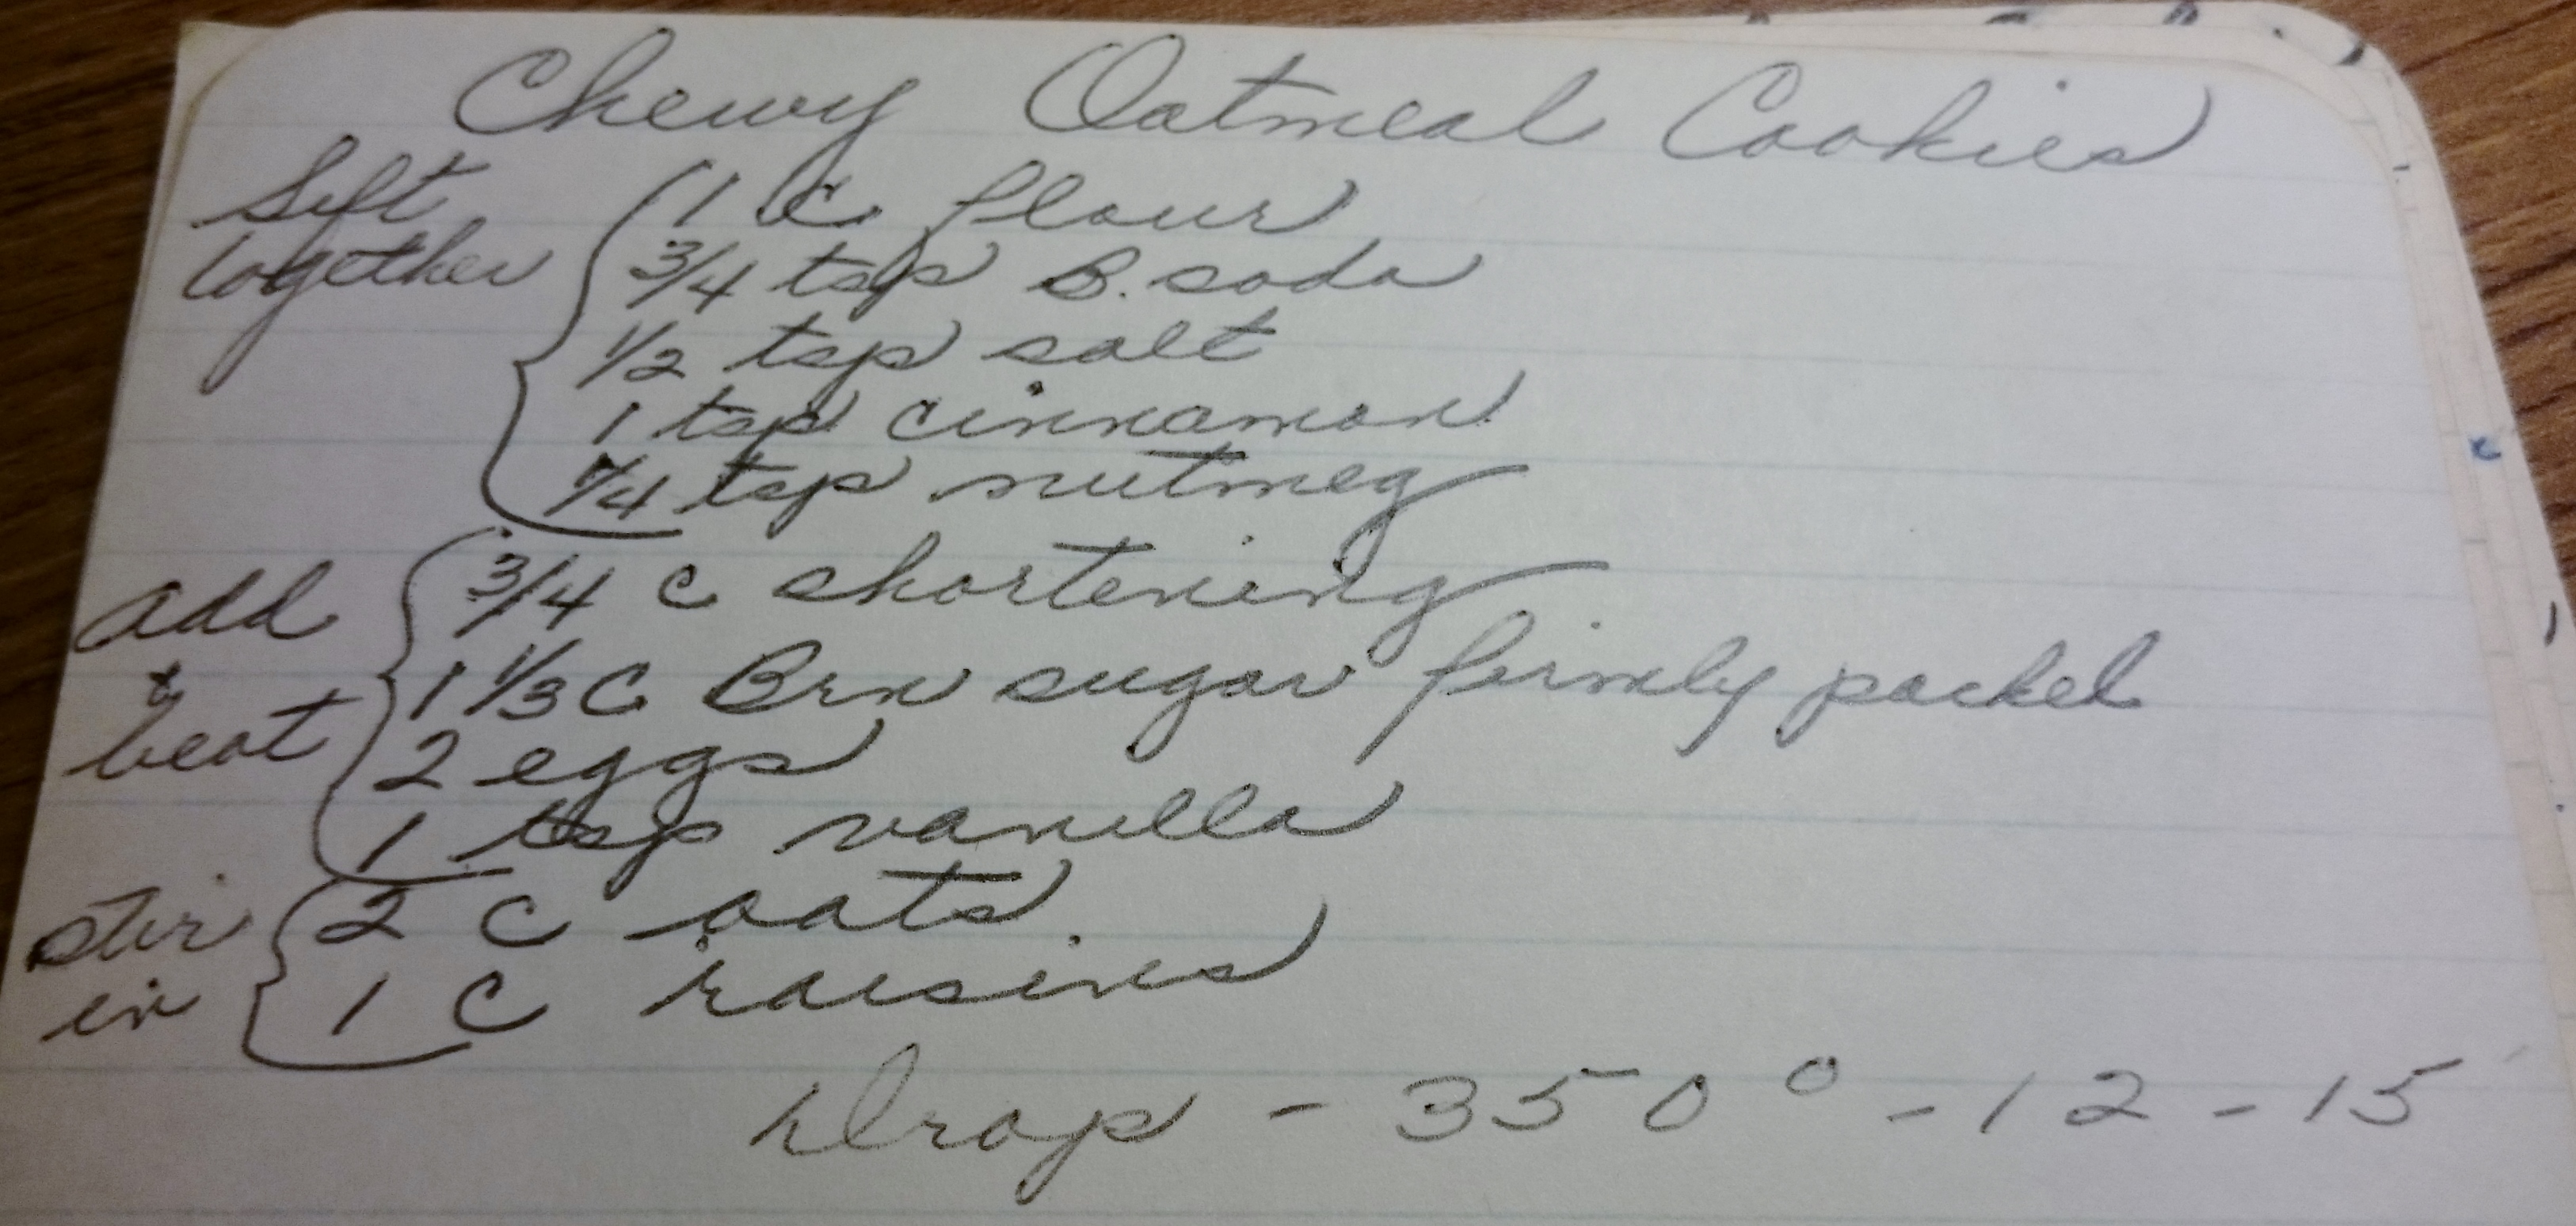 Chewy Oatmeal Cookies
Sift together
1 c flour
3/4 tsp B. soda
1/2 tsp salt
1 tsp cinnamon
1/4 tsp nutmeg
add & beat
3/4 c shortening
1 1/3 C Brn sugar firmly packed
2 eggs
1 tsp vanilla
stir in
2 C oats
1 C raisins
Drop - 350° - 12 - 15